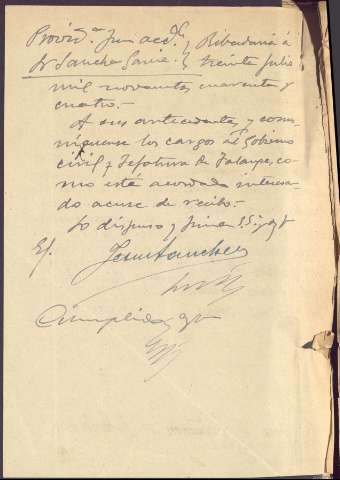 Provid.ª Juez acd.l } Ribadavia á
Sr Sanchez Garcia } treinta Julio
mil novecientos cuarenta y
cuatro.-
A sus antecedentes, y comu-
niquense los cargos al Gobierno
civil y Jefatura de Falange, co-
mo está acordado interesan-
do acuse de recibo.-
Lo dispuso y firma S.Sª; doy fé
E/.
Jesus Sanchez
Cumplido, doy fé